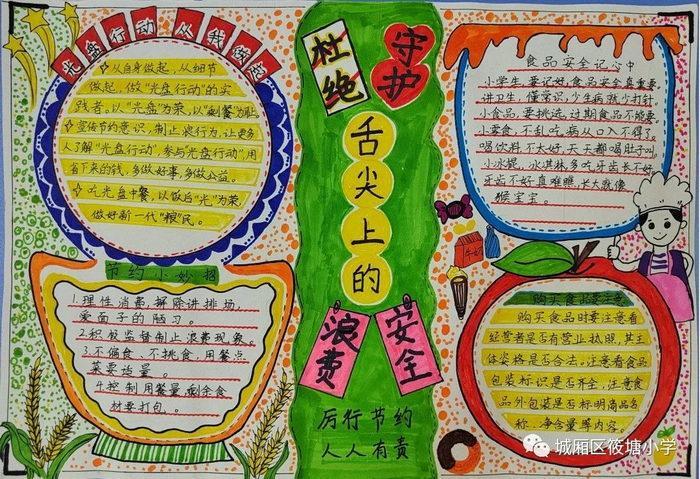 光盘行动 从我做起
☆从自身做起，从细节
做起，做“光盘行动”的实
践者。以“光盘”为荣，以“剩餐”为耻。
☆宣传节约意识，制止浪费行为，让更多
人了解“光盘行动”，参与光盘行动”用
省下来的钱，多做好事，多做公益。
☆吃光盘中餐，以做后“光”为荣
做好新一代“粮”民。
节约小妙招
1.理性消费，摒除讲排场，
爱面子的陋习。
2.积极监督制止浪费现象。
3.不偏食、不挑食，用餐点
菜要适量。
4.控制用餐量，剩余食
材要打包。
杜绝
守护
舌尖上的
浪费
安全
厉行节约
人人有责
食品安全记心中
小学生，要记好，食品安全真重要。
讲卫生，懂常识，少生病就少打针
小食品，要挑选，过期食品不能要
小零食，不乱吃，病从口入不得了。
喝饮料，不太好，天天都喝肚子叫。
小冰棍，冰淇林，多吃牙齿长不好
牙齿不好真难瞧，长大就像
猴宝宝。
购买食品要注意
购买食品时要注意看
经营者是否有营业执照，其主
体资格是否合法。注意看食品
包装标识是否齐全，注意食
品外包装是否标明商品名
称、净含量等内容。
城厢区筱塘小学